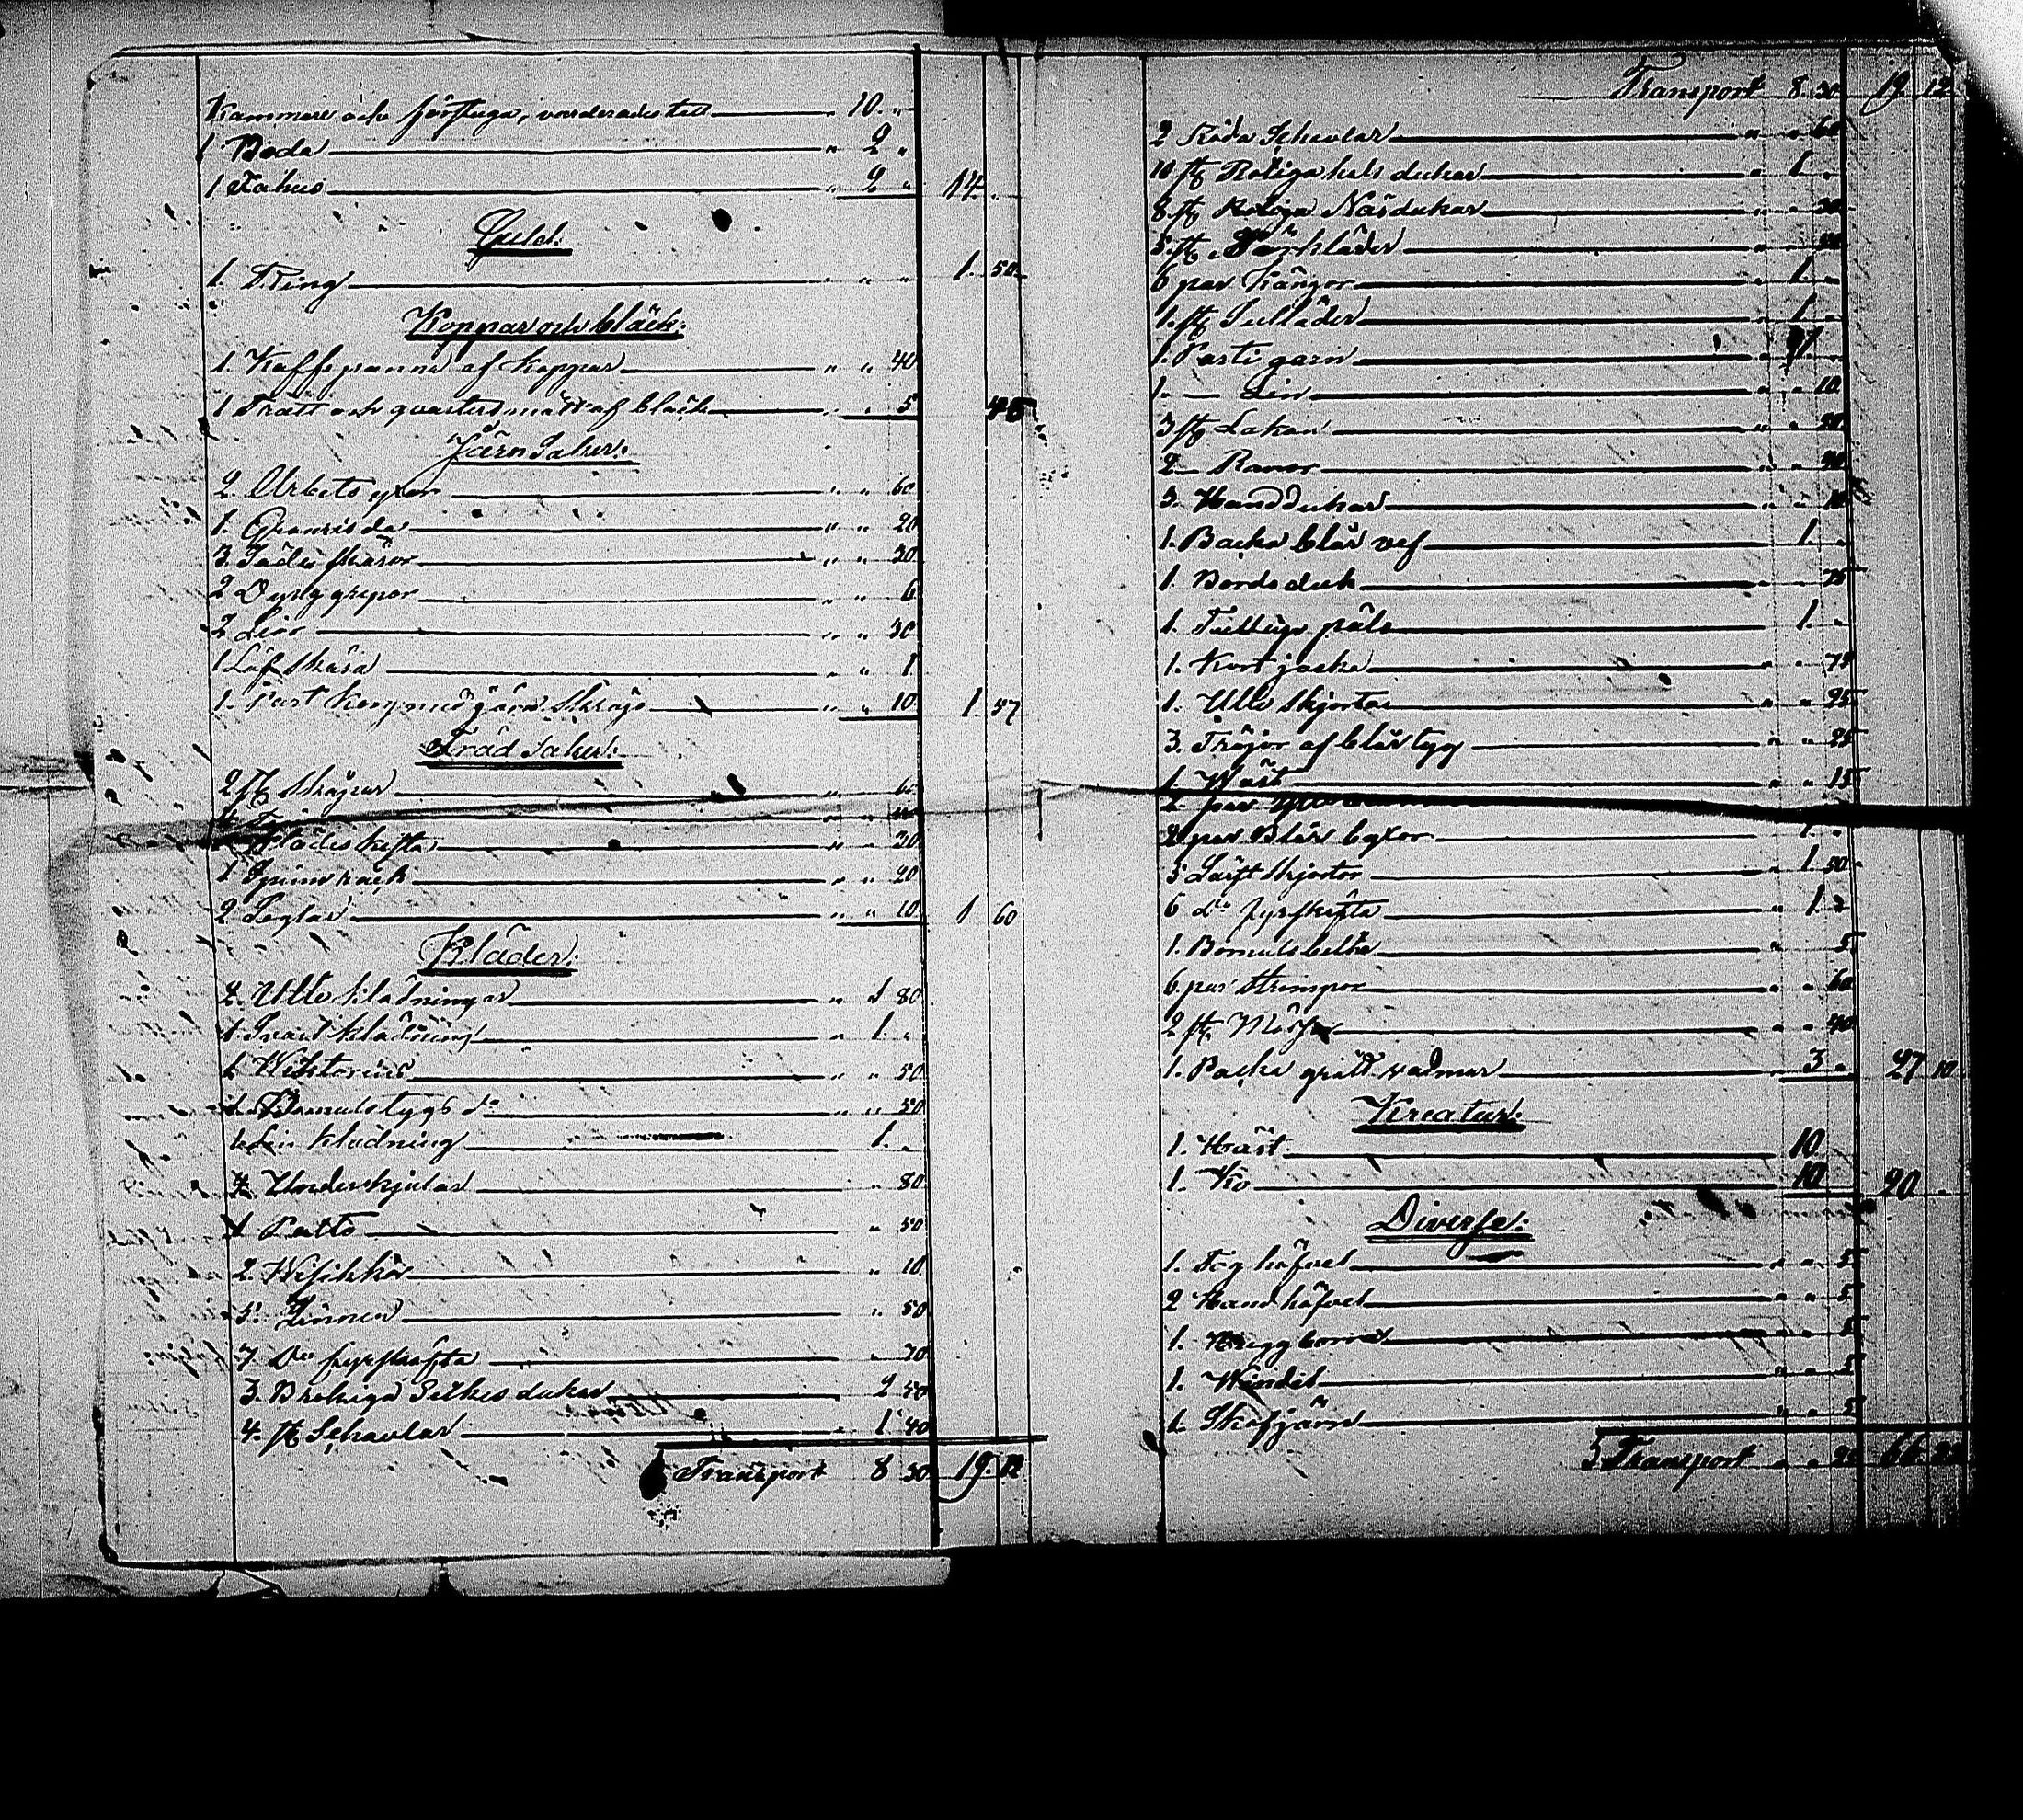 Kammare och förstuga, varderades till " 10. "
1 Boda " 2 "
1 Fähus " 2 " 14. "
Guld:
1. Ring " " " 1. 50
Koppar och bläck:
1. Kaffepanna af koppar " " 40
1 Tratt och qvarters mått af bläck " " 5 45
Järn Saker:
2. Arbets yxor " " 60
1. Granrisda " " 20
3. Sädes skäror " " 30
2 Dyng grepar " " 6
2 Liar " " 30
1 Löf skära " " 1
1. Part korg med järn Skräp " " 10 1 57
Träd Saker:
2 st Skrapor " "
" "
Slädes kista " " 30
1 Spinn rock " " 20
2 Seglar " " 10 1 60
Kläder:
2. Ulle klädningar " 1 80
1. Svart klädning " 1. "
1. Wiktorins " " 50
1. Bomulstygs d:o " " 50
1. Lin kladning 1. "
4. Underkjolar " 80
1 Paltå " 50
2. Wesikkor " 10
5. Linnen " 50
7. D:o fyrskäfta " 70
3. Brokiga Silkes dukar 2 50
4. st Schavlar " 1 40
Transport 8 30 19. 12
Transport 8. 30 19 12
2 Röda Schavlar " " 60
10 st Rotiga hals dukar " 1. "
8 st Rotiga Näsdukar " "
5 st Förkläder " "
6 par Kängor " 1. "
1. st Sulläder " 1 "
1. Parti garn " "
1. — Lin " " 10
3 st Lakan " "
2 — Ranor " "
3. Handdukar " "
1. Backa blår vef 1. "
1. Bordsduk " " 75
1. Fulltige päls 1. "
1. Kort jacka " " 75
1. Ulle skjortor " " 25
3. Tröjor af blårtyg " " 25
1. Wäst " " 15
2. par
2 par Blår byxor 1. "
3 Lärft skjortor 1 50
6 d:o fyrskäfta " 1. "
1. Bomulsbelta " 5
6. par Strumpor " " 60
2 st. Mössor " " 40
1. Packe grått vadmar " 3 " 27 10
Kreatur:
1. Häst 10
1. Ko 10 20 "
Diverse:
1. Fog häfvel " " 5
2 Hand häfvel " " 5
1. Brygg borrel " " 5
1. Windel " " 5
1. Skafjärn " " 5
Transport " " 25 66.